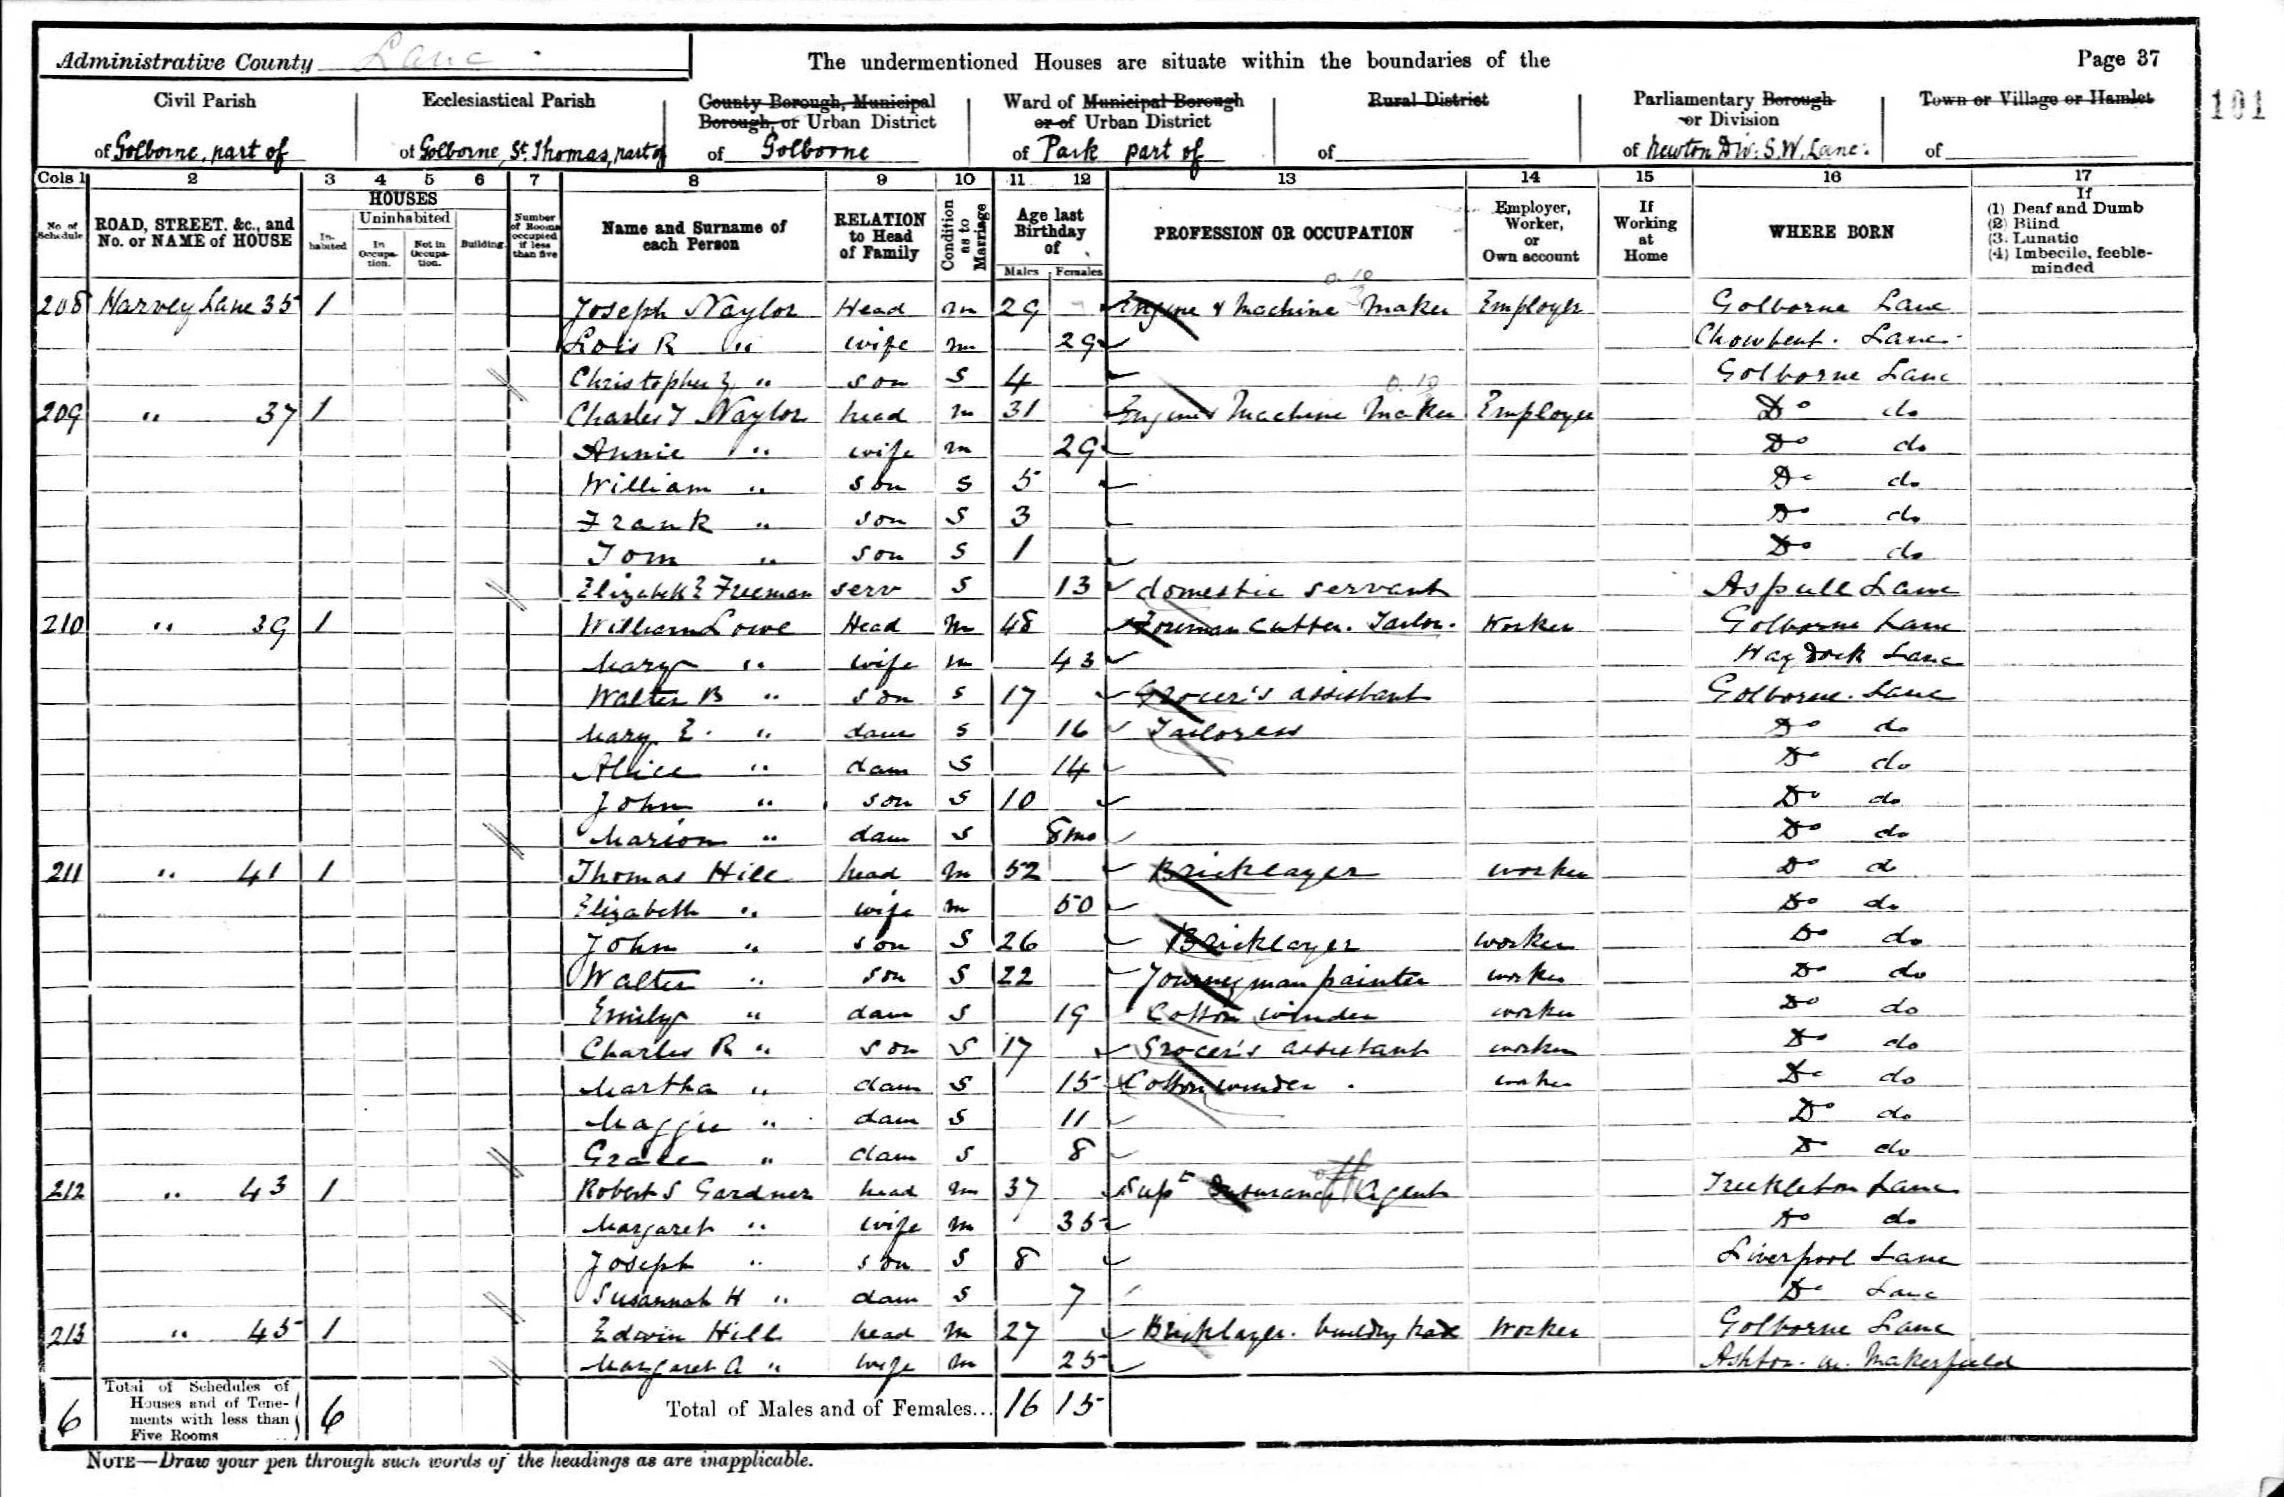 Administrative County Lanc
The undermentioned Houses are situate within the boundaries of the
Page 37
101
Civil Parish
of Golborne, part of
Ecclesiastical Parish
of Golborne, St. Thomas, part of
County Borough, Municipal Borough, or Urban District
of Golborne
Ward of Municipal Borough or of Urban District
of Park part of
Rural District
of
Parliamentary Borough or Division
of Newton Div. S.W. Lanc.
Town or Village or Hamlet
of
Cols 1 2 3 4 5 6 7 8 9 10 11 12 13 14 15 16 17
No. of Schedule
ROAD, STREET, &c., and No. or NAME of HOUSE
HOUSES
Inhabited
Uninhabited
In Occupation.
Not in Occupation.
Building
Number of Rooms occupied if less than five
Name and Surname of each Person
RELATION to Head of Family
Condition as to Marriage
Age last Birthday of
Males Females
PROFESSION OR OCCUPATION
Employer, Worker, or Own account
If Working at Home
WHERE BORN
If
(1) Deaf and Dumb
(2) Blind
(3. Lunatic
(4) Imbecile, feeble-minded
208 Harvey Lane 35 1 Joseph Naylor Head m 29 Engine & Machine Maker Employer Golborne Lanc
Lois R " wife m 29 Chowbent. Lanc
Christopher " son S 4 Golborne Lanc
209 " 37 1 Charles T Naylor head m 31 Engine & Machine Maker Employer Do do
Annie " wife m 29 Do do
William " son S 5 Do do
Frank " son S 3 Do do
Tom " son S 1 Do do
Elizabeth E Freeman serv S 13 domestic servant Aspull Lanc
210 " 39 1 William Lowe Head m 48 Foreman Cutter. Tailor. Worker Golborne Lanc
Mary " wife m 43 Haydock Lanc
Walter B " son S 17 Grocer's assistant Golborne. Lanc
Mary E. " daur S 16 Tailoress Do do
Alice " daur S 14 Do do
John " son S 10 Do do
Marion " daur S 8mo Do do
211 " 41 1 Thomas Hill head m 52 Bricklayer worker Do do
Elizabeth " wife m 50 Do do
John " son S 26 Bricklayer worker Do do
Walter " son S 22 Journeyman painter worker Do do
Emily " daur S 19 Cotton winder worker Do do
Charles R " son S 17 Grocer's assistant worker Do do
Martha " daur S 15 Cotton winder. worker Do do
Maggie " daur S 11 Do do
Grace " daur S 8 Do do
212 " 43 1 Robert S Gardner head m 37 Supt Insurance Agent Freckleton Lanc
Margaret " wife m 35 Do do
Joseph " son S 8 Liverpool Lanc
Susannah H " daur S 7 Do Lanc
213 " 45 1 Edwin Hill head m 27 Bricklayer. Worker Golborne Lanc
Margaret A " wife m 25 Ashton. in. Makerfield
6 Total of Schedules of Houses and of Tenements with less than Five Rooms 6 Total of Males and of Females... 16 15
NOTE—Draw your pen through such words of the headings as are inapplicable.